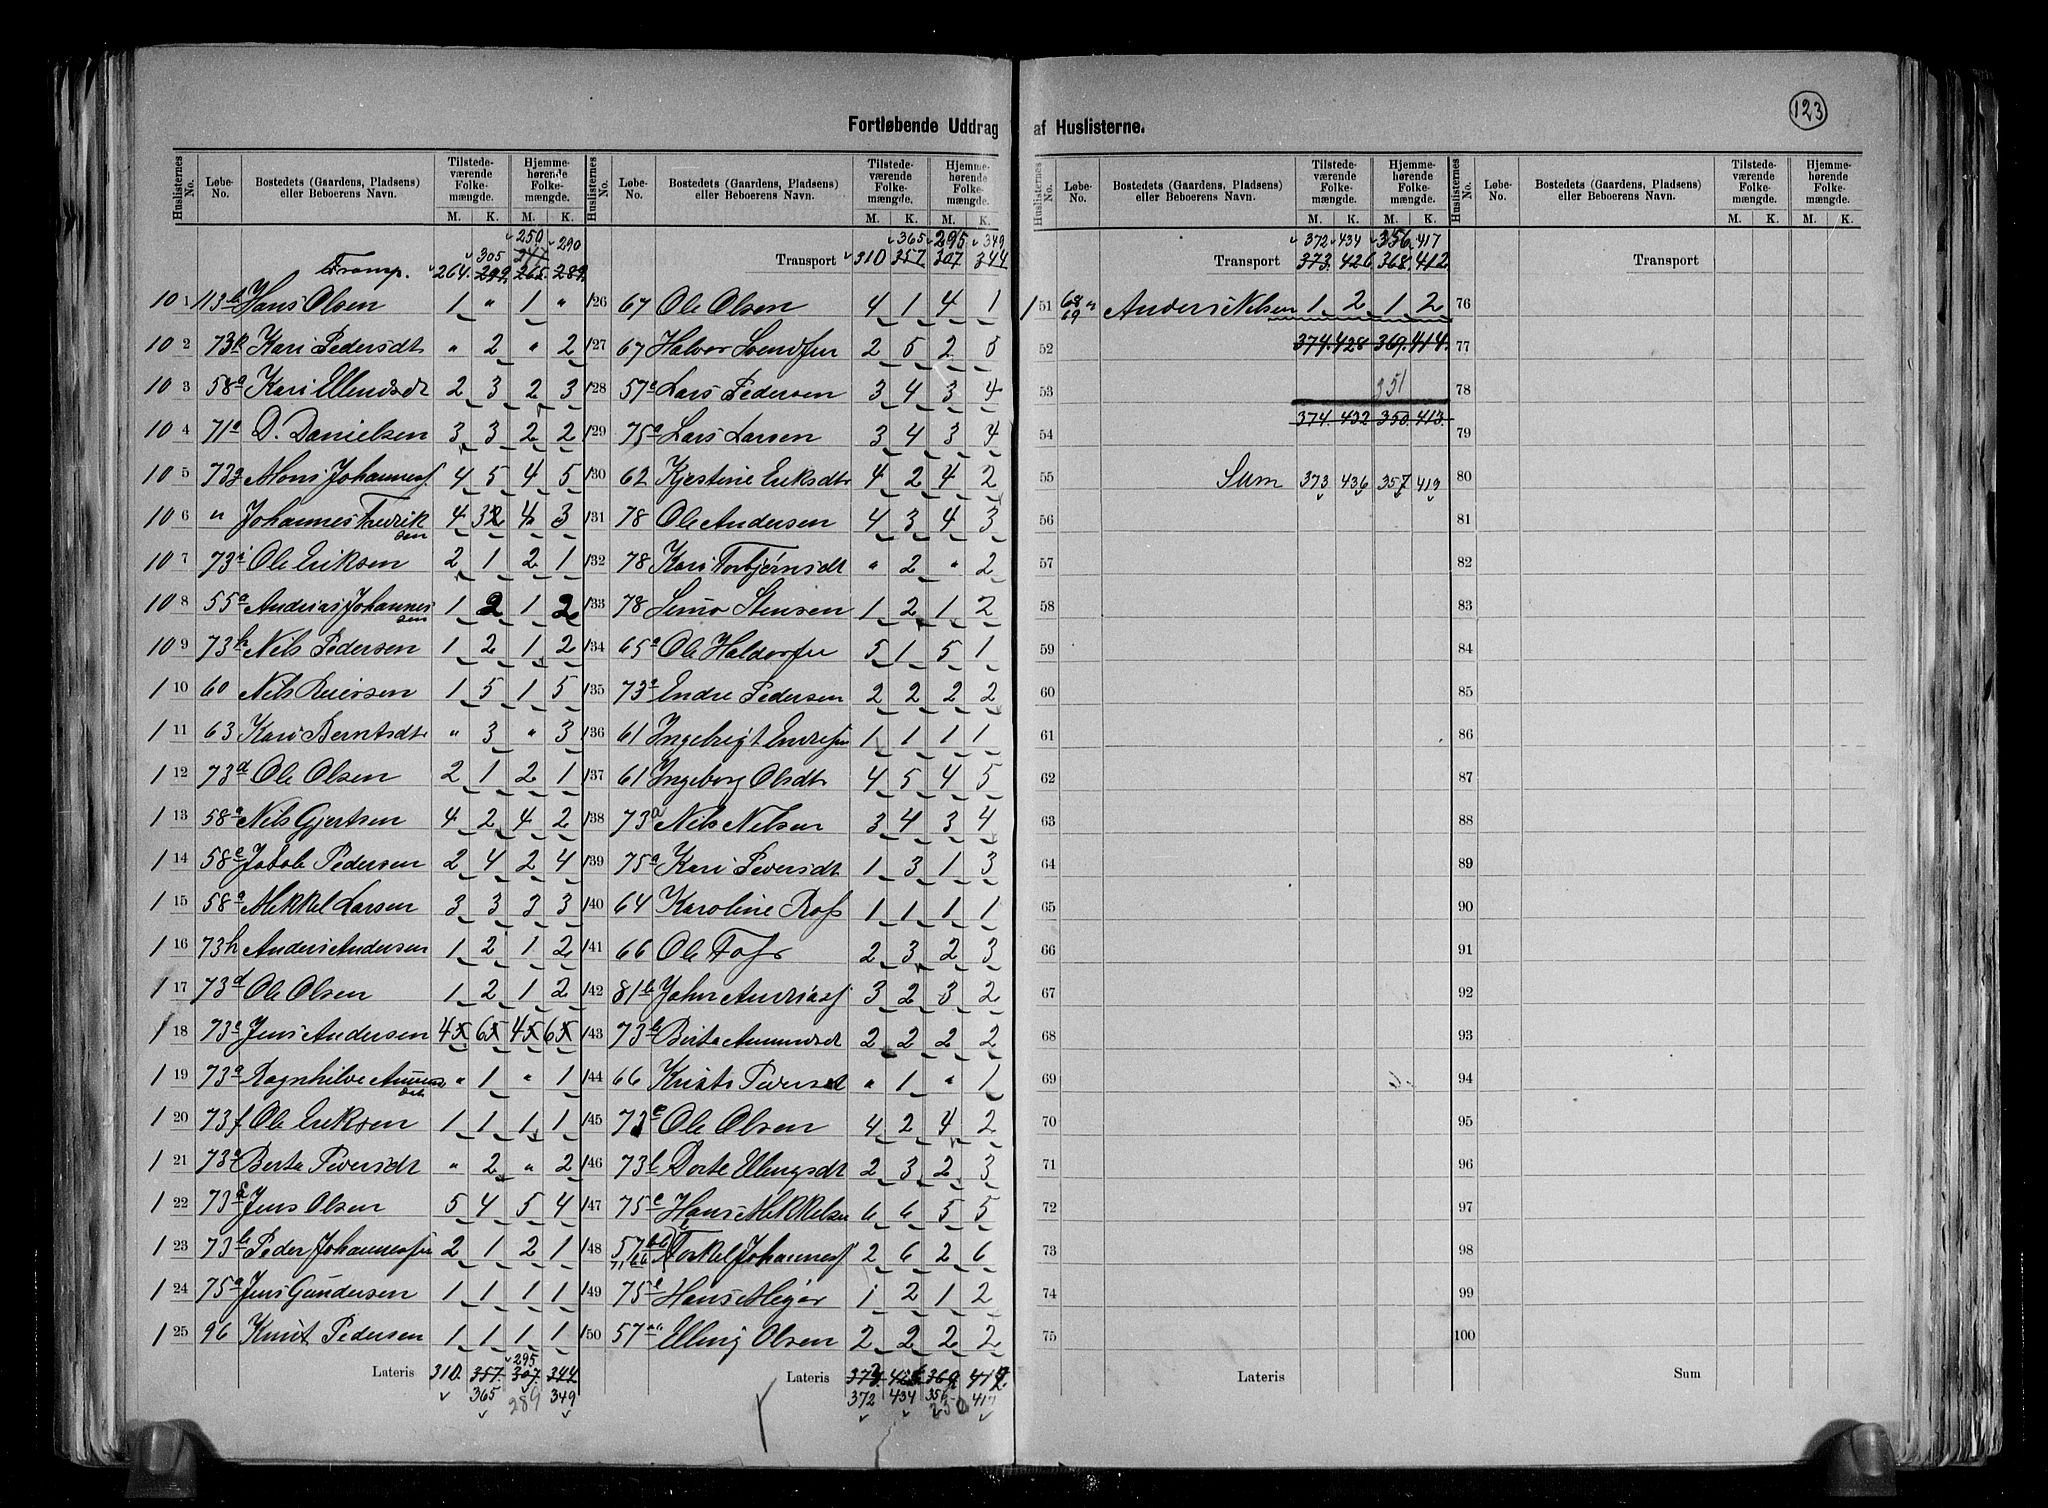 123
Fortløbende Uddrag af Huslisterne.
Huslisternes No. Løbe-No. Bostedets (Gaardens, Pladsens) eller Beboerens Navn. Tilstedeværende Folkemængde. M. K. Hjemmehørende Folkemængde. M. K.
Transp. 264 299 305 265 247 250 289 290
10 1 113b Hans Olsen 1 " 1 "
10 2 73k Kari Pedersdt " 2 " 2
10 3 58a Kari Ellendsdt 2 3 2 3
10 4 71a D. Danielsen 3 3 2 2
10 5 73g Mons Johannesf 4 5 4 5
10 6 " Johannes Fredriksen 4 32 4 3
10 7 73i Ole Eriksen 2 1 2 1
10 8 55a Andreas Johannessen 1 2 1 2
10 9 73h Nils Pedersen 1 2 1 2
1 10 60 Nils Reiersen 1 5 1 5
1 11 63 Kari Berntsdt " 3 " 3
1 12 73d Ole Olsen 2 1 2 1
1 13 58a Nils Gjertsen 4 2 4 2
1 14 58e Jakob Pedersen 2 4 2 4
1 15 58a Mekkel Larsen 3 3 3 3
1 16 73h Anders Andersen 1 2 1 2
1 17 73d Ole Olsen 1 2 1 2
1 18 73a Jens Andersen 45 65 45 65
1 19 73a Ragnhilde " 1 " 1
1 20 73f Ole Eriksen 1 1 1 1
1 21 73a Berta Iversdt " 2 " 2
1 22 73a Jens Olsen 5 4 5 4
1 23 73b Peder Johannessen 2 1 2 1
1 24 75a Jens Gundersen 1 1 1 1
1 25 96 Knut Pedersen 1 1 1 1
Lateris 310. 357. 307 344
295
365 289 349
Huslisternes No. Løbe-No. Bostedets (Gaardens, Pladsens) eller Beboerens Navn. Tilstedeværende Folkemængde. M. K. Hjemmehørende Folkemængde. M. K.
365 295 349
Transport 310 357 307 344
126 67 Ole Olsen 4 1 4 1
127 67 Halvor Svendsen 2 5 2 5
128 57a Lars Pedersen 3 4 3 4
129 75a Lars Larsen 3 4 3 4
130 62 Kjestine Eriksdt 4 2 4 2
131 78 Ole Andersen 4 3 4 3
132 78 Kari Torbjørnsdt " 2 " 2
133 78 Simo Stensen 1 2 1 2
134 65a Ole Haldorsen 5 1 5 1
135 73a Endre Pedersen 2 2 2 2
136 61 Ingebrigt Endresen 1 1 1 1
137 61 Ingeborg Olsdt 4 5 4 5
138 73a Nils Nilsen 3 4 3 4
139 75a Kari Iversdt 1 3 1 3
140 64 Karoline Ross 1 1 1 1
141 66 Ole Foss 2 3 2 3
142 81b John Andreasf 3 2 3 2
143 73b Berta Amundsdt 2 2 2 2
144 66 Kristi Iversdt " 1 " 1
145 73e Ole Olsen 4 2 4 2
146 73l Dorte Ellingsdt 2 3 2 3
147 75e Hans Mekkelsen 6 6 5 5
148 57 71 66 Torkel Johannesf 2 6 2 6
149 75b Hans Meyer 1 2 1 2
150 57 Elling Olsen 2 2 2 2
Lateris 373. 426 369 412
372 434 356 417
250
Huslisternes No. Løbe-No. Bostedets (Gaardens, Pladsens) eller Beboerens Navn. Tilstedeværende Folkemængde. M. K. Hjemmehørende Folkemængde. M. K.
372 434 356 417
Transport 373. 426 368. 412
1 51 68 69 Anders Nilsen 1 2 1 2
52 374. 428 369. 414.
53 351
54 374. 432 350. 413.
55 Sum 373 436 357 419
56
57
58
59
60
61
62
63
64
65
66
67
68
69
70
71
72
73
74
75
Lateris
Huslisternes No. Løbe-No. Bostedets (Gaardens, Pladsens) eller Beboerens Navn. Tilstedeværende Folkemængde. M. K. Hjemmehørende Folkemængde. M. K.
Transport
76
77
78
79
80
81
82
83
84
85
86
87
88
89
90
91
92
93
94
95
96
97
98
99
100
Sum